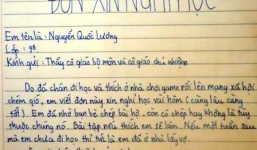 ĐƠN XIN NGHỈ HỌC
Em tên là : Nguyễn Quốc Lương
Lớp : 9B
Kính gửi : Thầy cô giáo bộ môn và cô giáo chủ nhiệm
Do đó chán đi học và thích ở nhà chơi game rồi lên mạng xã hội
chém gió, em viết đơn này xin nghỉ học vài hôm ( càng lâu càng
tốt ). Em đã nhờ bạn bè chép bài hộ , còn có chép hay không là tùy
thuộc chúng nó. Bài tập nếu thích em sẽ làm. Nếu một tuần sau
mà em chưa đi học thì hẳn là em đã ở nhà lấy vợ